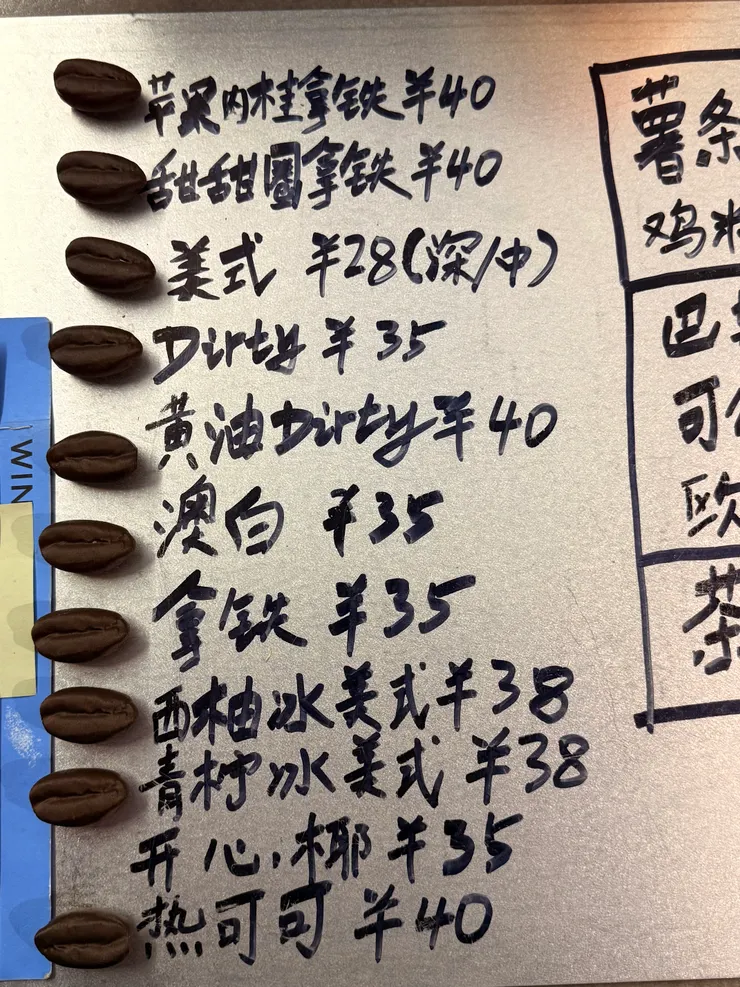 苹果肉桂拿铁 ¥40
甜甜圈拿铁 ¥40
美式 ¥28(深/中)
Dirty ¥35
黄油Dirty ¥40
澳白 ¥35
拿铁 ¥35
西柚冰美式 ¥38
青柠冰美式 ¥38
开心椰 ¥35
热可可 ¥40
薯条
鸡
巴
可
欧
茶
WIN